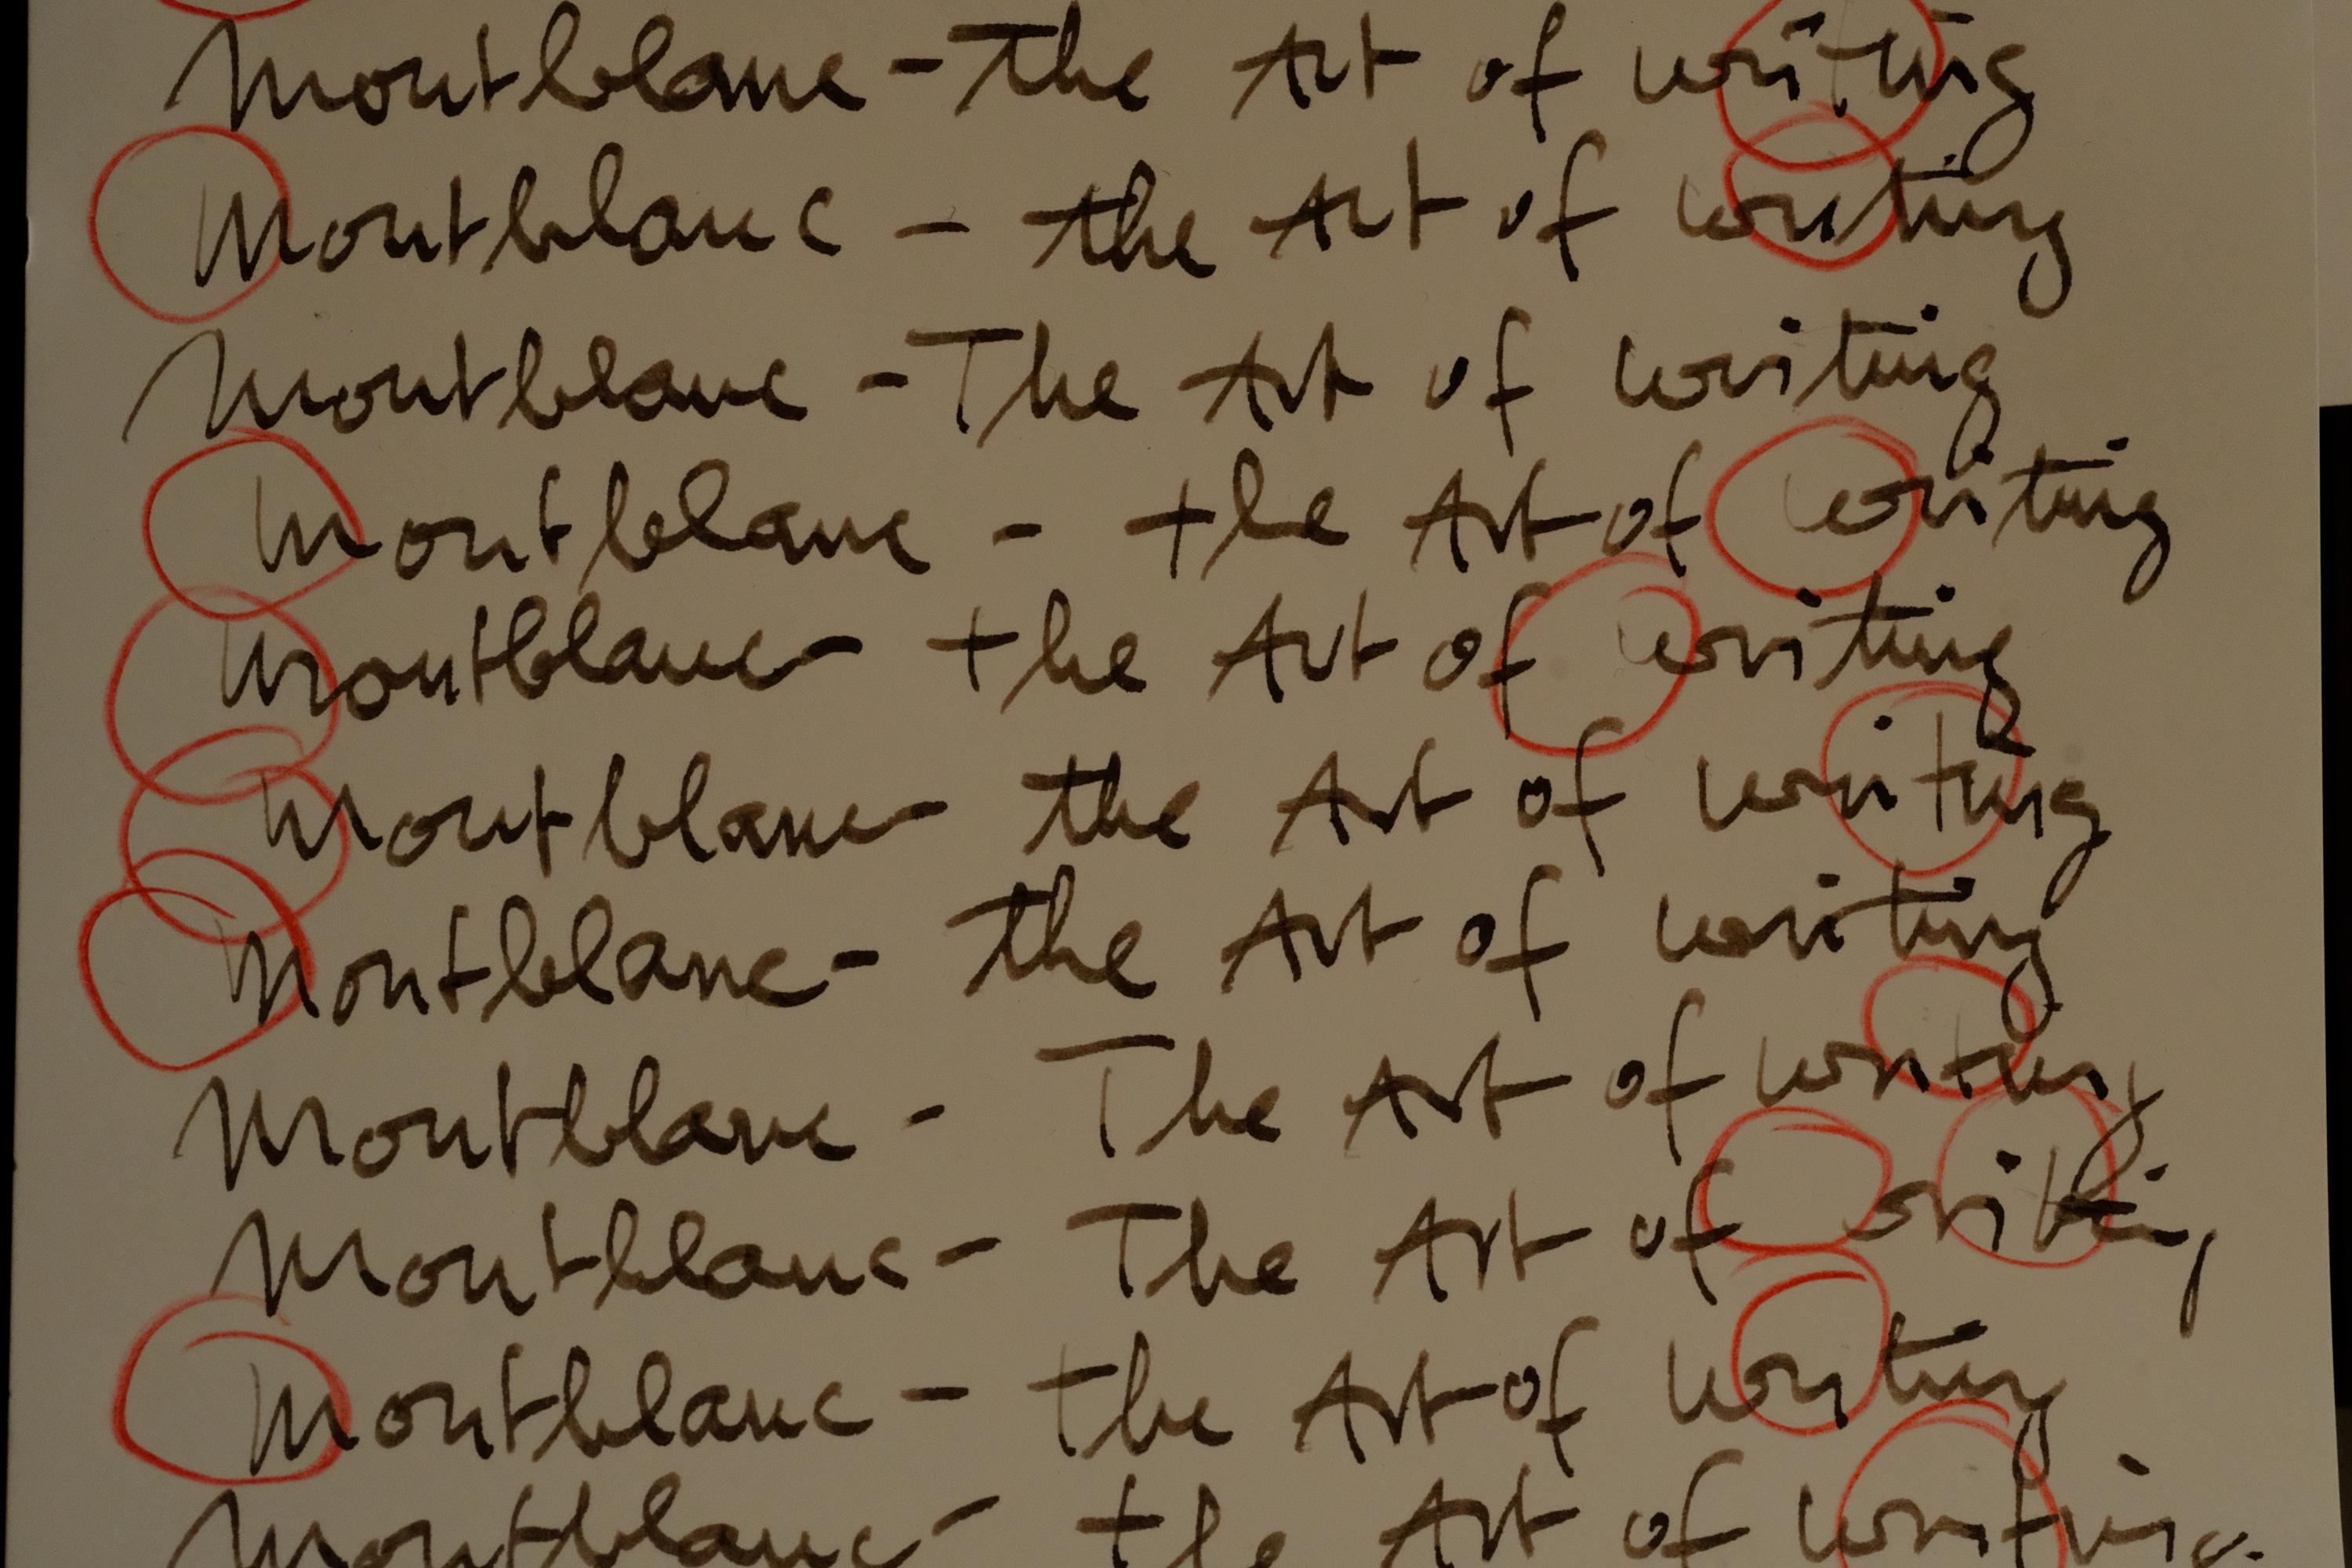 Montblanc - The Art of writing
Montblanc - the Art of writing
Montblanc - The Art of writing
Montblanc - the Art of writing
Montblanc - the Art of writing
Montblanc - the Art of writing
Montblanc - the Art of writing
Montblanc - The Art of writing
Montblanc - The Art of writing
Montblanc - the Art of writing
Montblanc - the Art of writing